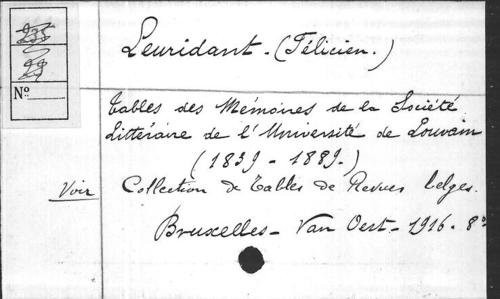 Leuridant. (Félicien.)
235
29
No
Tables des Mémoires de la Société
Littéraire de l'Université de Louvain
(1839 - 1889.)
Voir Collection de Tables de Revues belges.
Bruxelles - Van Oest - 1916. 8o